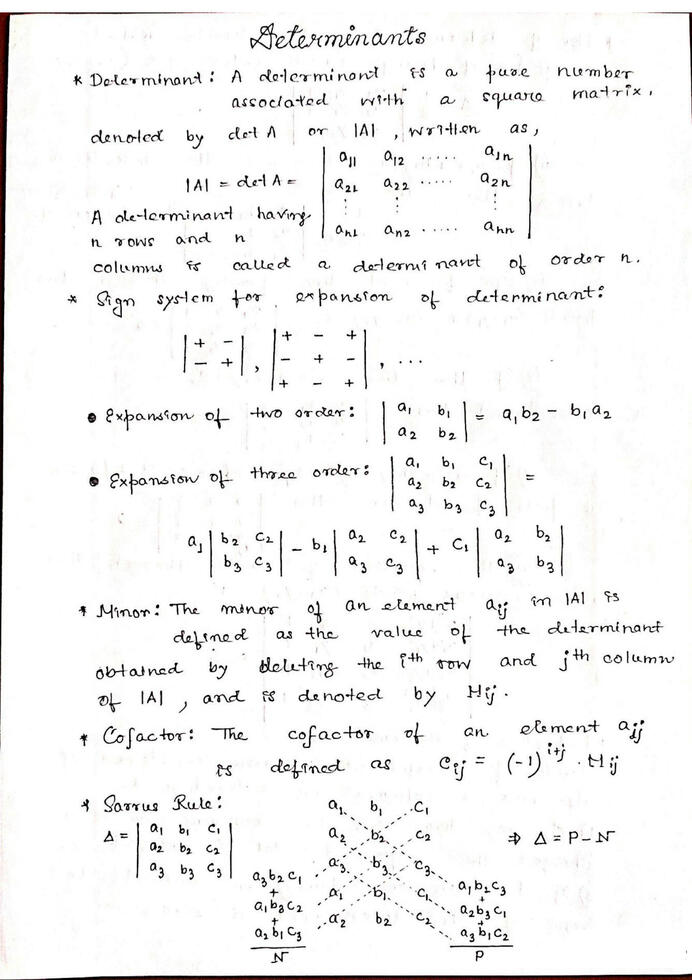 Determinants
* Determinant: A determinant is a pure number
associated with a square matrix,
denoted by det A or |A|, written as,
|A| = det A = | a11 a12 ..... a1n |
| a21 a22 ..... a2n |
| ⋮ ⋮ ⋮ |
| an1 an2 ..... ann |
A determinant having
n rows and n
columns is called a determinant of order n.
* Sign system for expansion of determinant:
| + - | , | + - + | , ...
| - + | | - + - |
| + - + |
• Expansion of two order: | a1 b1 | = a1b2 - b1a2
| a2 b2 |
• Expansion of three order: | a1 b1 c1 |
| a2 b2 c2 | =
| a3 b3 c3 |
a1 | b2 c2 | - b1 | a2 c2 | + c1 | a2 b2 |
| b3 c3 | | a3 c3 | | a3 b3 |
* Minor: The minor of an element aij in |A| is
defined as the value of the determinant
obtained by deleting the ith row and jth column
of |A|, and is denoted by Mij.
* Cofactor: The cofactor of an element aij
is defined as Cij = (-1)^i+j . Mij
* Sarrus Rule:
Δ = | a1 b1 c1 |
| a2 b2 c2 |
| a3 b3 c3 |
a1 b1 c1
a2 b2 c2
a3 b3 c3
a1 b1 c1
a2 b2 c2
a3b2c1
+
a1b3c2
+
a2b1c3
N
a1b2c3
+
a2b3c1
+
a3b1c2
P
⇒ Δ = P - N